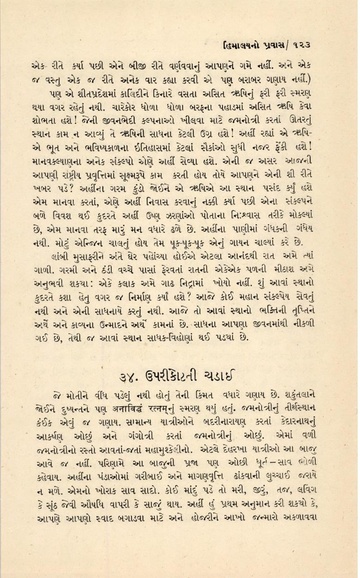 હિમાલયનો પ્રવાસ/ ૧૨૩
એક રીતે કર્યા પછી એને બીજી રીતે વર્ણવવાનું આપણને ગમે નહીં. અને એક
જ વસ્તુ એક જ રીતે અનેક વાર કહ્યા કરવી એ પણ બરાબર ગણાય નહીં.)
પણ એ શીતપ્રદેશમાં કાલિંદીને કિનારે વસતા અસિત ઋષિનું ફરી ફરી સ્મરણ
થયા વગર રહેતું નથી. ચારેકોર ધોળા ધોળા બરફના પહાડમાં અસિત ઋષિ કેવા
શોભતા હશે! જેની જીવનભેદી કલ્પનાઓ ખીલવા માટે જમનોત્રી કરતાં ઊતરતું
સ્થાન કામ ન આવ્યું તે ઋષિની સાધના કેટલી ઉગ્ર હશે! અહીં રહ્યાં એ ઋષિ-
એ ભૂત અને ભવિષ્યકાળના ઇતિહાસમાં કેટલાં સૈકાંઓ સુધી નજર ફેંકી હશે!
માનવકલ્યાણના અનેક સંકલ્પો એણે અહીં સેવ્યા હશે. એની જ અસર આજની
આપણી રાષ્ટ્રીય પ્રવૃત્તિમાં સૂક્ષ્મરૂપે કામ કરતી હોય તોયે આપણને એની શી રીતે
ખબર પડે? અહીંના ગરમ કુંડો જોઈને એ ઋષિએ આ સ્થાન પસંદ કર્યું હશે
એમ માનવા કરતાં, એણે અહીં નિવાસ કરવાનું નક્કી કર્યા પછી એના સંકલ્પને
બળે વિવશ થઈ કુદરતે અહીં ઉષ્ણ ઝરણાંઓ પોતાના નિઃશ્વાસ તરીકે મોકલ્યાં
છે, એમ માનવા તરફ મારું મન વધારે ઢળે છે. અહીંના પાણીમાં ગંધકની ગંધેય
નથી. મોટું એન્જિન ચાલતું હોય તેમ ધૂક-ધૂક-ધૂક એનું ગાયન ચાલ્યાં કરે છે.
લાંબી મુસાફરીને અંતે ઘેર પહોંચ્યા હોઈએ એટલા આનંદથી રાત અમે ત્યાં
ગાળી. ગરમી અને ઠંડી વચ્ચે પાસાં ફેરવતાં રાતની એકેએક પળની મીઠાશ અમે
અનુભવી શક્યા: એકે કલાક અમે ગાઢ નિદ્રામાં ખોયો નહીં. શું આવાં સ્થાનો
કુદરતે કશા હેતુ વગર જ નિર્માણ કર્યાં હશે? આજે કોઈ મહાન સંકલ્પેય સેવતું
નથી અને એની સાધનાયે કરતું નથી. આજે તો આવાં સ્થાનો ભક્તિની તૃપ્તિને
અર્થે અને કાવ્યના ઉન્માદને અર્થે કામનાં છે. સાધના આપણા જીવનમાંથી નીકળી
ગઈ છે, તેથી જ આવાં સ્થાન સાધક-વિહોણાં થઈ પડ્યાં છે.
૩૪. ઉપરીકોટની ચડાઈ
જે મોતીને વીંધ પડેલું નથી હોતું તેની કિંમત વધારે ગણાય છે. શકુંતલાને
જોઈને દુષ્યન્તને પણ अनाविद्धं रत्नम्‌નું સ્મરણ થયું હતું. જમનોત્રીનું તીર્થસ્થાન
કંઈક એવું જ ગણાય. સામાન્ય યાત્રીઓને બદરીનારાયણ કરતાં કેદારનાથનું
આકર્ષણ ઓછું અને ગંગોત્રી કરતાં જમનોત્રીનું ઓછું. એમાં વળી
જમનોત્રીનો રસ્તો આવતાં-જતાં મહામુશ્કેલીનો. એટલે દેદારખા યાત્રીઓ આ બાજુ
આવે જ નહીં. પરિણામે આ બાજુની પ્રજા પણ ઓછી ધૂર્ત – સાવ ભોળી
કહેવાય. અહીંના પંડાઓમાં ગરીબાઈ અને માગણવૃત્તિ ઢાંકવાની લુચ્ચાઈ જરાયે
ન મળે. એમનો ખોરાક સાવ સાદો. કોઈ માંદું પડે તો મરી, જીરું, તજ, લવિંગ
કે સૂંઠ જેવી ઔષધિ વાપરી કે સાજું થાય. અહીં હું પ્રથમ અનુમાન કરી શક્યો કે,
આપણે આપણો સ્વાદ બગાડવા માટે અને હોજરીને આખો જન્મારો અકળાવવા